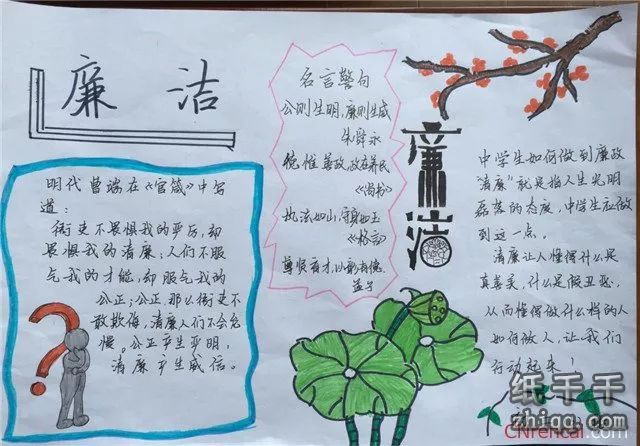 廉 洁
明代曾端在《官箴》中写
道:
衙吏不畏惧我的严厉,却
畏惧我的清廉;人们不服
气我的才能,却服气我的
公正;公正那么衙吏不
敢欺侮,清廉人们不会怠
慢。公正产生严明,
清廉产生威信。
名言警句
公则生明,廉则生威
朱舜水
德惟善政,政在养民
《尚书》
执法如山,守身如玉
《格言》
孟子
廉洁
中学生如何做到廉政
"清廉"就是指人生光明
磊落的态度,中学生应做
到这一点。
清廉让人懂得什么是
真善美,什么是假丑恶,
从而懂得做什么样的人
如何做人,让我们
行动起来!
纸千千
zhiqq.com
CNrencai.com